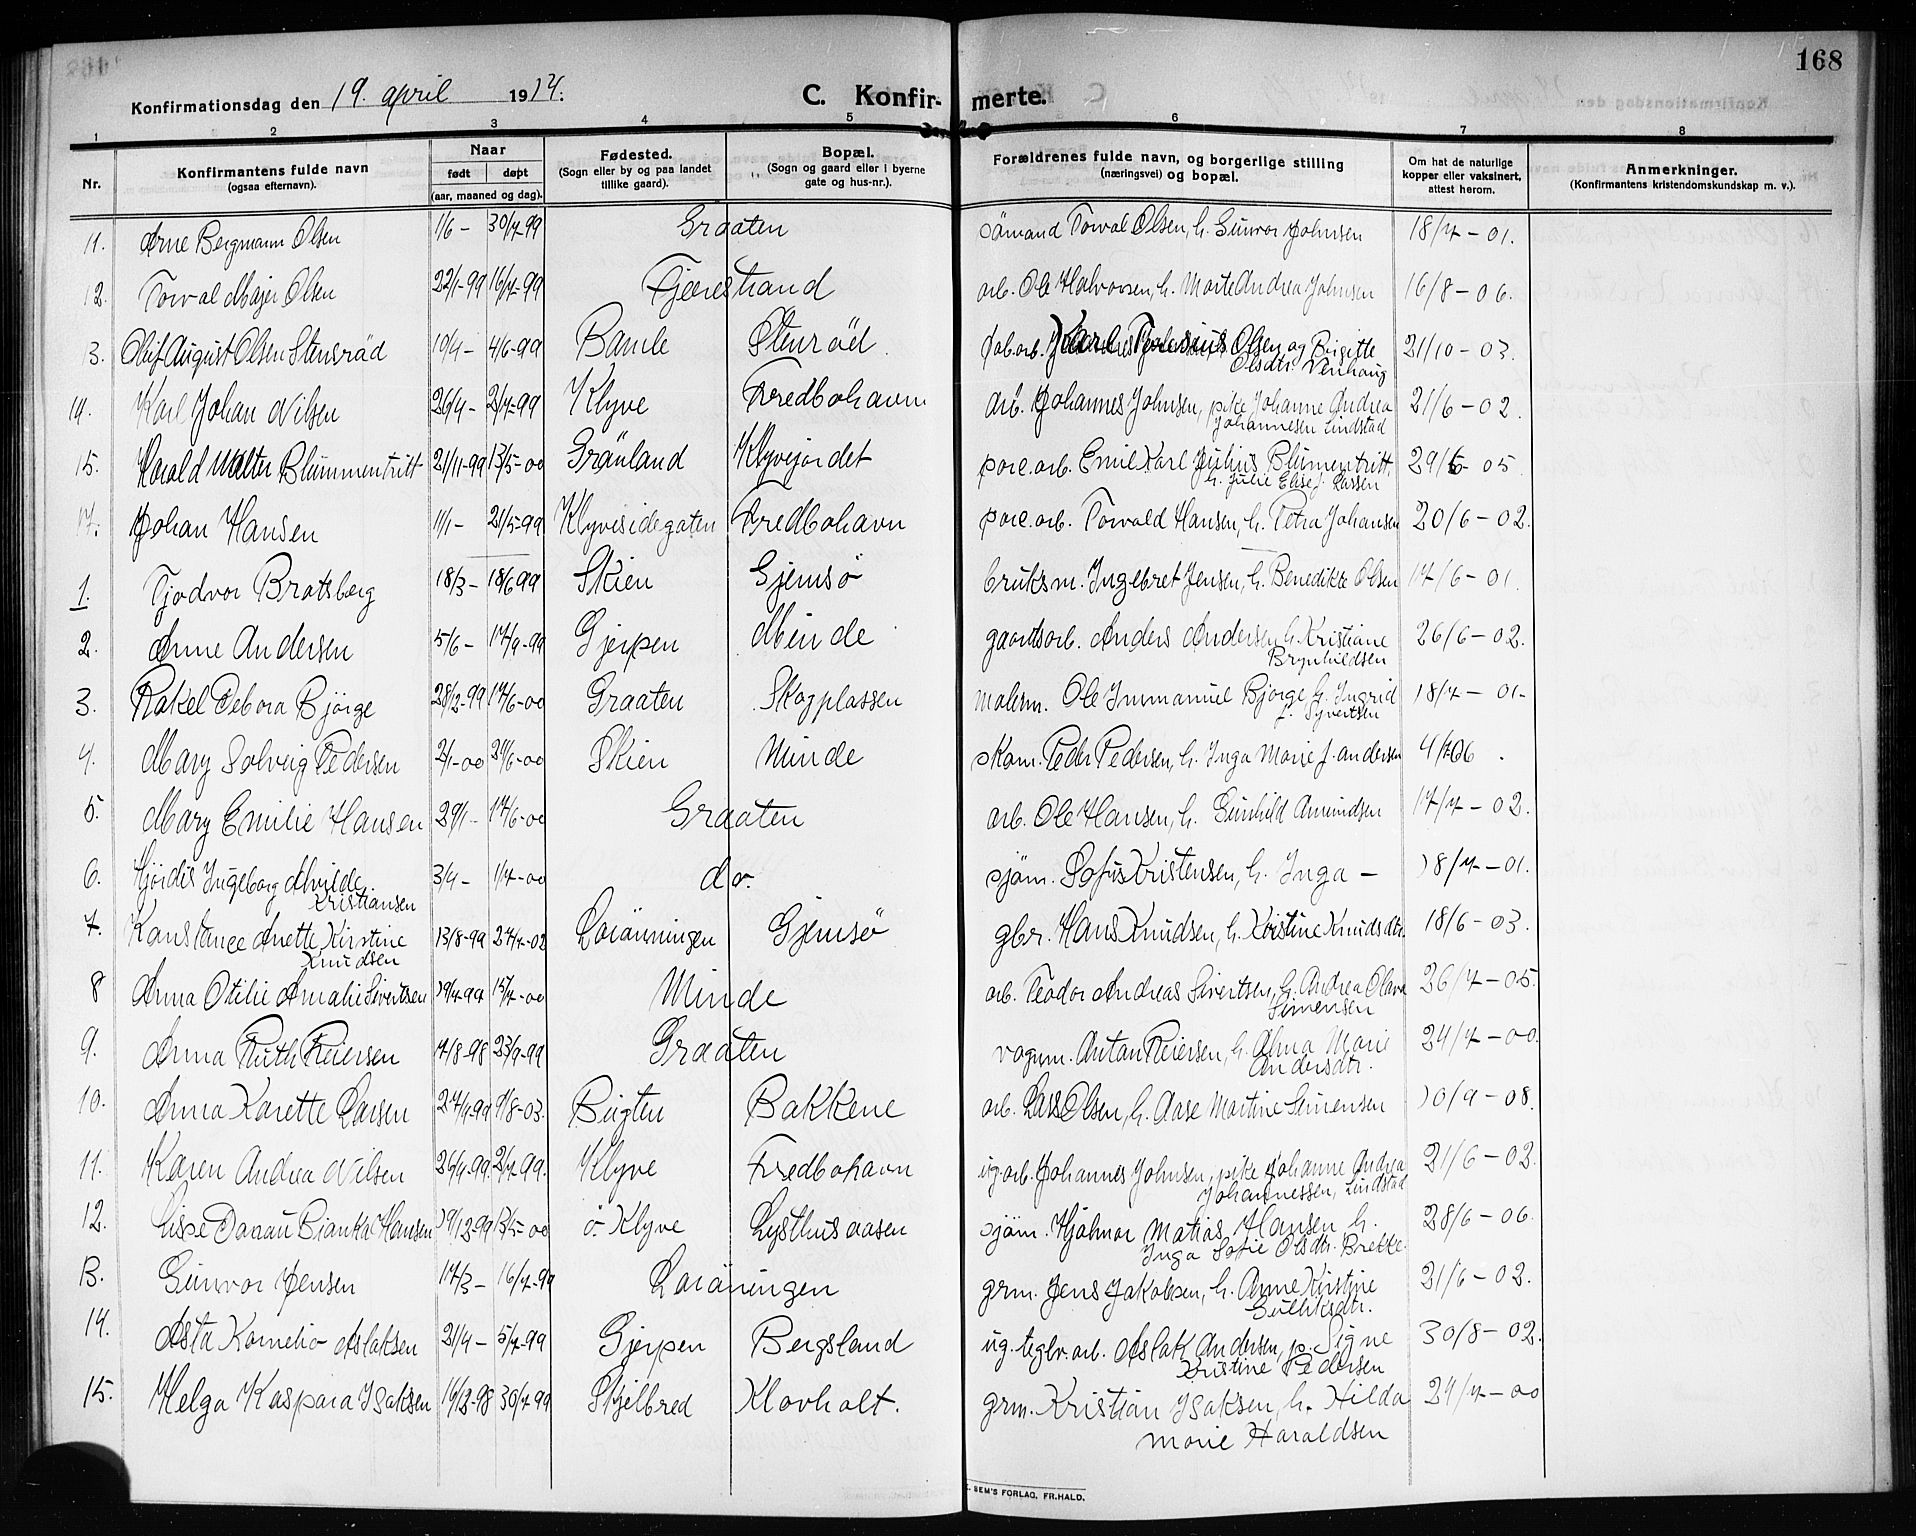 168
Konfirmationsdag den 19. april 1914.
C. Konfir- merte.
1 2 3 4 5 6 7 8
Nr.
Konfirmantens fulde navn
(ogsaa efternavn).
Naar
født døpt
(aar, maaned og dag).
Fødested.
(Sogn eller by og paa landet
tillike gaard).
Bopæl.
(Sogn og gaard eller i byerne
gate og hus-nr.).
Forældrenes fulde navn, og borgerlige stilling
(næringsvei) og bopæl.
Om hat de naturlige
kopper eller vaksinert,
attest herom.
Anmerkninger.
(Konfirmantens kristendomskundskap m. v.).
11. Arne Bergmann Olsen 1/6 - 30/7-99 Graaten sömand Torval Olsen, h. Gunvor Johnsen 18/7 - 01.
12. Torval Majer Olsen 22/1-99 16/7-99 Fjærestrand arb. Ole Halvorsen, h. Marte Andrea Johnsen 16/8 - 06.
3. Oluf August Olsen Stensrød 10/4 - 4/6-99 Bamle Stenrød fab.arb. Olsen og Brigitte 21/10 - 03.
Olsdtr. Venhaug
14. Karl Johan Nilsen 26/4 - 2/7-99 Klyve Fredbohavn arb. Johannes Johnsen, pike Johanne Andrea 21/6 - 02.
Johannesen Lindstad
15. Harald Walter Blümmentritt 21/11-99 13/5-00 Grönland Klyvejordet porc.arb. Emil Karl Julius Blümentritt, 29/6 - 05
h. Julie Elise f. Larsen
17. Johan Hansen 1/1 - 21/5-99 Klyvesidegaten Fredbohavn porc.arb. Torvald Hansen, h. Petra Johansen 20/6 - 02.
1. Tjodvor Bratsberg 18/3 - 18/6 99 Skien Gjemsø bruksm. Ingebret Jensen, h. Benedikte Olsen 17/6 - 01.
2. Anne Andersen 5/6 - 17/9-99 Gjerpen Minde gaardsarb. Anders Andersen h. Kristiane 26/6 - 02.
Brynhildsen
3. Rakel Debora Bjørge 28/12-99 17/6-00 Graaten Skogplassen malerm. Ole Immanuel Bjørge h. Ingrid 18/7 - 01-
f. Syvertsen
4. Mary Solveig Pedersen 2/1-00 24/6-00 Skien Minde skom. Peder Pedersen, h. Inga Marie f. Andersen
5. Mary Emilie Hansen 29/1 - 17/6-00 Graaten arb. Ole Hansen, h. Gunhild Amundsen 17/7 - 02.
6. Hjördis Ingeborg Alvilde 3/4 - 1/7-00 do. sjöm. Sofus Kristensen, h. Inga - 18/7 - 01.
Kristiansen
7. Konstance Anette Kirstine 13/8-99 27/7-02 Loråningen Gjemsø gbr. Hans Knudsen, h. Kristine Knudsdtr. 18/6 - 03.
Knudsen
8 Anna Otilie Amalie Sivertsen 19/4-99 15/7-00 Minde arb. Teodor Andreas Sivertsen, h. Andrea Olava 26/7 - 05.
Simensen
9. Anna Ruth Reiersen 17/8-98 23/7-99 Graaten vognm. Anton Reiersen, h. Alma Marie 24/7 - 00.
Andersdtr.
10. Anna Karette Larsen 27/9-99 9/8-03. Bugten Bakkene arb. Lars Olsen, h. Aase Martine Simensen 10/9 - 08.
11. Karen Andrea Nilsen 26/4-99. 2/7-99. Klyve Fredbohavn ug.arb. Johannes Johnsen, pike Johanne Andrea 21/6 - 02.
Johannessen, Lindstad
12. Lisse Danau Bianka Hansen 19/12-99 13/5-00 ö. Klyve Lysthusaasen sjöm. Hjalmar Matias Hansen h. 28/6 - 06.
Inga Sofie Olsdtr. Brekke.
13. Gunvor Jensen 17/3 - 16/7-99 Loråningen grm. Jens Jakobsen, h. Anne Kirstine 21/6 - 02.
Gulliksdtr.
14. Asta Kornelia Aslaksen 21/4 - 5/7-99 Gjerpen Bergsland ug. teglv.arb. Aslak Andersen, p. Signe 30/8 - 02.
Kristine Pedersen
15. Helga Kaspara Isaksen 16/12-98 30/7-99 Skjelbred Klovholt. grm. Kristian Isaksen, h. Hilda 24/7 - 00
Marie Haraldsen
SEM'S FORLAG, FR.HALD.